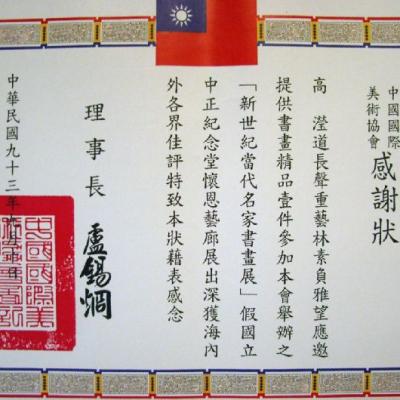 中國國際
美術協會
感謝狀
高　瀅道長聲重藝林素負雅望應邀
提供書畫精品壹件參加本會舉辦之
「新世紀當代名家書畫展」假國立
中正紀念堂懷恩藝廊展出深獲海內
外各界佳評特致本狀藉表感念
理事長
盧錫烱
中華民國九十三年